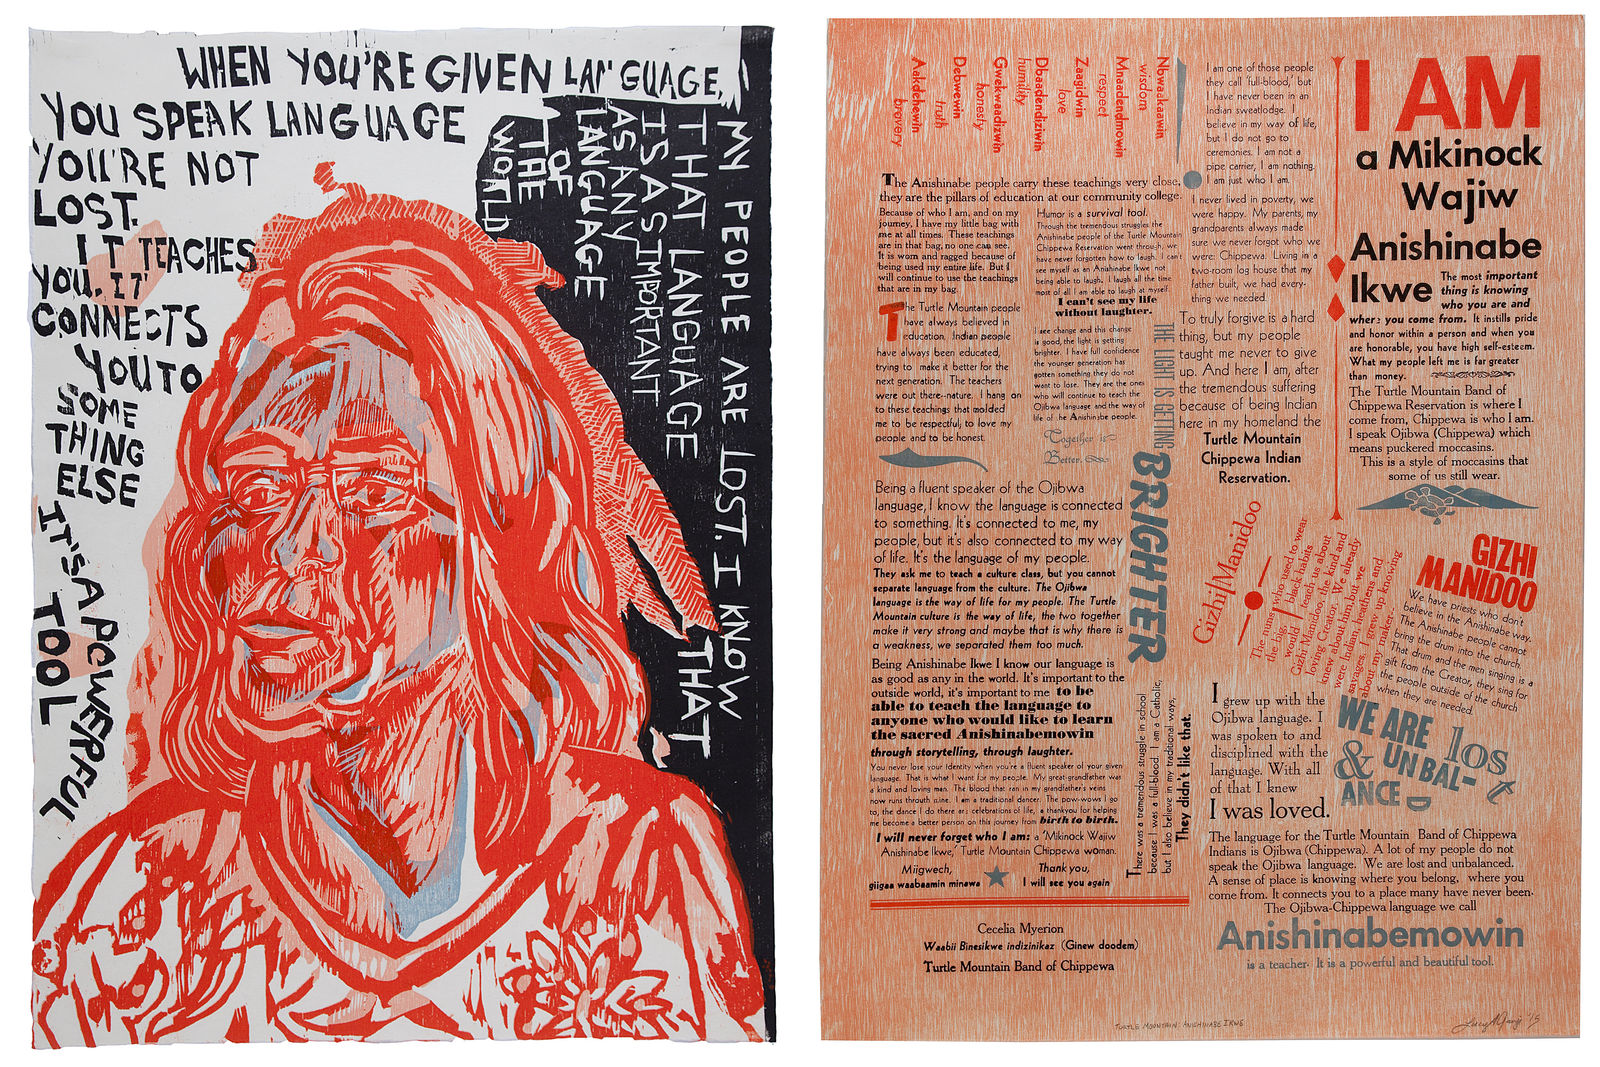 WHEN YOU'RE GIVEN LANGUAGE,
YOU SPEAK LANGUAGE
YOU'RE NOT
LOST.
IT TEACHES
YOU. IT
CONNECTS
YOU TO
SOME
THING
ELSE
IT'S A POWERFUL
TOOL
MY PEOPLE ARE LOST. I KNOW
THAT LANGUAGE THAT
IS AS IMPORTANT
AS ANY
LANGUAGE
OF
THE
WORLD
Nbwaakaawin
wisdom
Mnaadendmowin
respect
Zaagidwin
love
Dbaadendiziwin
humility
Gwekwaadizwin
honesty
Debwewin
truth
Aakdehewin
bravery
The Anishinabe people carry these teachings very close,
they are the pillars of education at our community college.
Because of who I am, and on my
journey, I have my little bag with
me at all times. These teachings
are in that bag, no one can see.
It is worn and ragged because of
being used my entire life. But I
will continue to use the teachings
that are in my bag.
The Turtle Mountain people
have always believed in
education. Indian people
have always been educated,
trying to make it better for the
next generation. The teachers
were out there--nature. I hang on
to these teachings that molded
me to be respectful, to love my
people and to be honest.
Humor is a survival tool.
Through the tremendous struggles the
Anishinabe people of the Turtle Mountain
Chippewa Reservation went through, we
have never forgotten how to laugh. I can't
see myself as an Anishinabe Ikwe not
being able to laugh. I laugh all the time
most of all I am able to laugh at myself.
I can't see my life
without laughter.
I see change and this change
is good, the light is getting
brighter. I have full confidence
the younger generation has
gotten something they do not
want to lose. They are the ones
who will continue to teach the
Ojibwa language and the way of
life of the Anishinabe people.
Together is
Better.
THE LIGHT IS GETTING
BRIGHTER
Being a fluent speaker of the Ojibwa
language, I know the language is connected
to something. It's connected to me, my
people, but it's also connected to my way
of life. It's the language of my people.
They ask me to teach a culture class, but you cannot
separate language from the culture. The Ojibwa
language is the way of life for my people. The Turtle
Mountain culture is the way of life, the two together
make it very strong and maybe that is why there is
a weakness, we separated them too much.
Being Anishinabe Ikwe I know our language is
as good as any in the world. It's important to the
outside world, it's important to me to be
able to teach the language to
anyone who would like to learn
the sacred Anishinabemowin
through storytelling, through laughter.
You never lose your identity when you're a fluent speaker of your given
language. That is what I want for my people. My great-grandfather was
a kind and loving man. The blood that ran in my grandfather's veins
now runs through mine. I am a traditional dancer. The pow-wows I go
to, the dance I do there are celebrations of life, a thankyou for helping
me become a better person on this journey from birth to birth.
I will never forget who I am: a 'Mikinock Wajiw
Anishinabe Ikwe,' Turtle Mountain Chippewa woman.
Miigwech,
giigaa waabaamin minawa
Thank you,
I will see you again
There was a tremendous struggle in school
because I was a full-blood. I am a Catholic,
but I also believe in my traditional ways,
They didn't like that.
Cecelia Myerion
Waabii Binesikwe indizinikaz (Ginew doodem)
Turtle Mountain Band of Chippewa
I am one of those people
they call 'full-blood,' but
I have never been in an
Indian sweatlodge. I
believe in my way of life,
but I do not go to
ceremonies. I am not a
pipe carrier, I am nothing.
I am just who I am.
I never lived in poverty, we
were happy. My parents, my
grandparents always made
sure we never forgot who we
were: Chippewa. Living in a
two-room log house that my
father built, we had every-
thing we needed.
To truly forgive is a hard
thing, but my people
taught me never to give
up. And here I am, after
the tremendous suffering
because of being Indian
here in my homeland the
Turtle Mountain
Chippewa Indian
Reservation.
I AM
a Mikinock
Wajiw
Anishinabe
Ikwe
The most important
thing is knowing
who you are and
where you come from. It instills pride
and honor within a person and when you
are honorable, you have high self-esteem.
What my people left me is far greater
than money.
The Turtle Mountain Band of
Chippewa Reservation is where I
come from, Chippewa is who I am.
I speak Ojibwa (Chippewa) which
means puckered moccasins.
This is a style of moccasins that
some of us still wear.
Gizhi Manidoo
The nuns who used to wear
the big, black habits
would teach us about
Gizhi Manidoo, the kind and
loving Creator. We already
knew about him, but we
were Indian, heathens and
savages. I grew up knowing
about my maker.
GIZHI
MANIDOO
We have priests who don't
believe in the Anishinabe way.
The Anishinabe people cannot
bring the drum into the church.
That drum and the men singing is a
gift from the Creator, they sing for
the people outside of the church
when they are needed.
I grew up with the
Ojibwa language. I
was spoken to and
disciplined with the
language. With all
of that I knew
I was loved.
WE ARE lost
& UNBAL-
ANCED
The language for the Turtle Mountain Band of Chippewa
Indians is Ojibwa (Chippewa). A lot of my people do not
speak the Ojibwa language. We are lost and unbalanced.
A sense of place is knowing where you belong, where you
come from. It connects you to a place many have never been.
The Ojibwa-Chippewa language we call
Anishinabemowin
is a teacher. It is a powerful and beautiful tool.
TURTLE MOUNTAIN: ANISHINABE IKWE
'15